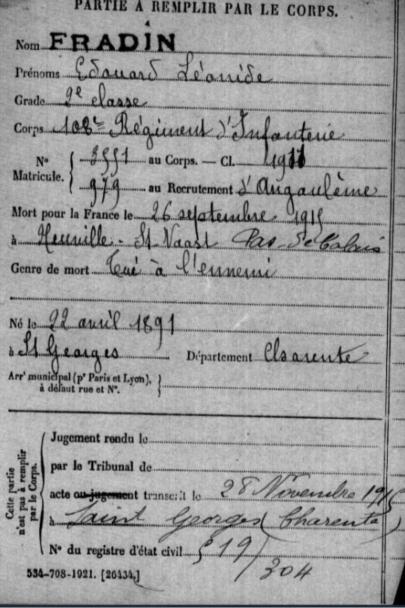 PARTIE À REMPLIR PAR LE CORPS.
Nom FRADIN
Prénoms Edouard Léonide
Grade 2e classe
Corps 108e Régiment d'Infanterie
N° 3551 au Corps. — Cl. 1911
Matricule. 979 au Recrutement d'Angoulême
Mort pour la France le 26 septembre 1915
à Neuville-St Vaast Pas-de-Calais
Genre de mort Tué à l'ennemi
Né le 22 avril 1891
à St Georges Département Charente
Arr' municipal (p' Paris et Lyon),
à défaut rue et N°.
Cette partie
n'est pas à remplir
par le Corps.
Jugement rendu le
par le Tribunal de
acte ou jugement transcrit le 28 Novembre 1915
à Saint Georges (Charente)
N° du registre d'état civil 519/
304
534-708-1921. [26434.]